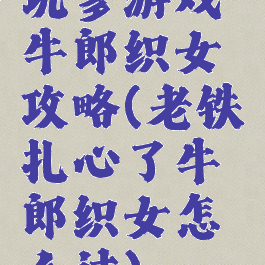 坑爹游戏
牛郎织女
攻略(老铁
扎心了牛
郎织女怎
么过)